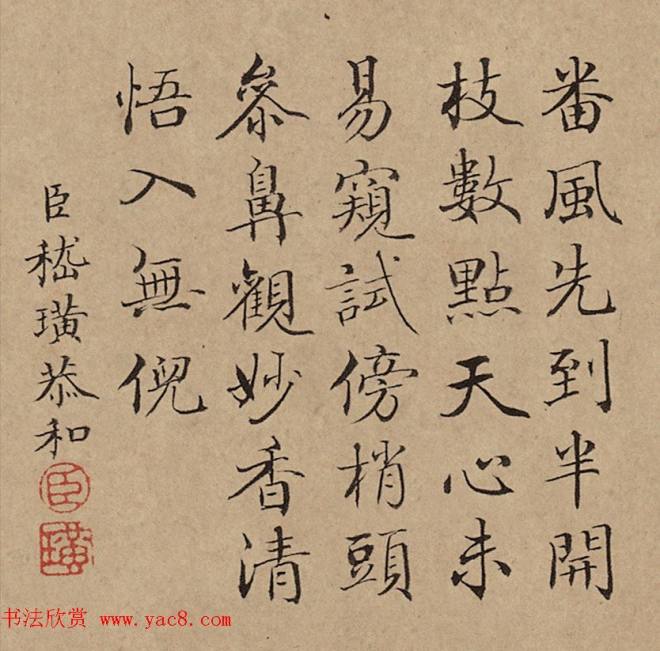 番風先到半開
枝數點天心未
易窺試傍梢頭
叅鼻觀妙香清
悟入無倪
臣嵇璜恭和
臣
璜
书法欣赏 www.yac8.com